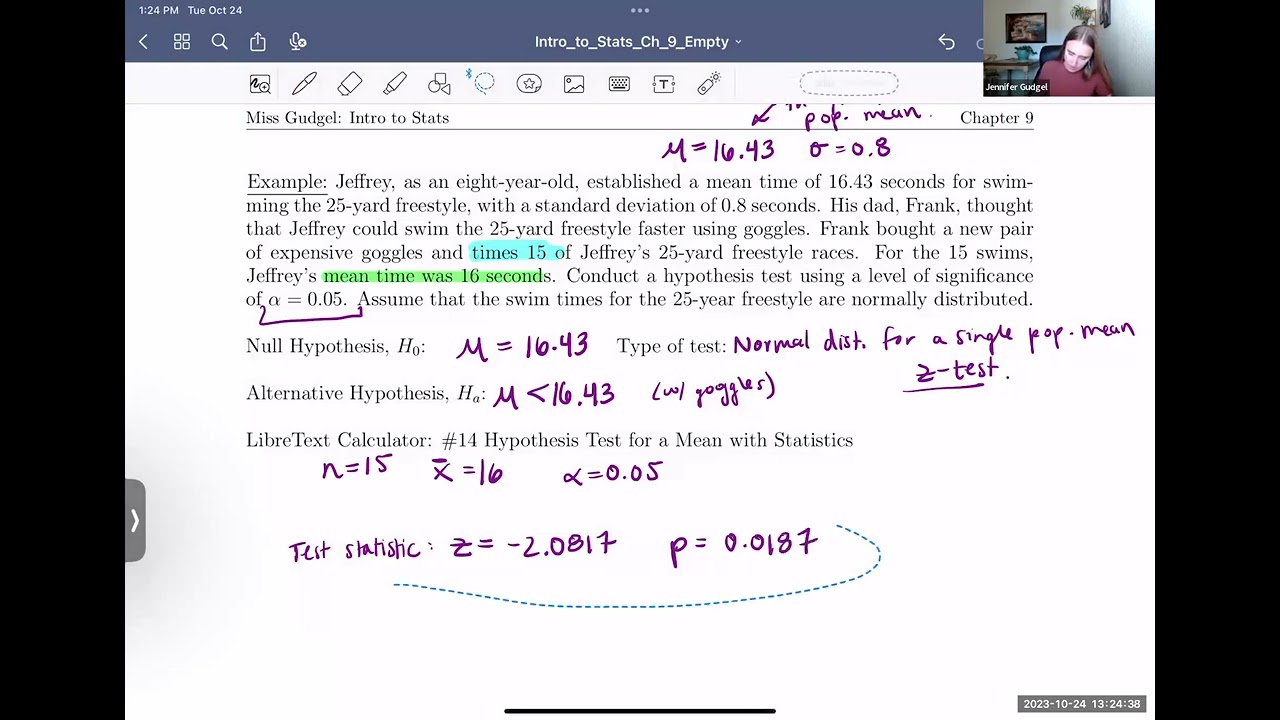 1:24 PM Tue Oct 24
Intro_to_Stats_Ch_9_Empty
Jennifer Gudgel
pop. mean.
Miss Gudgel: Intro to Stats Chapter 9
μ = 16.43 σ = 0.8
Example: Jeffrey, as an eight-year-old, established a mean time of 16.43 seconds for swim-
ming the 25-yard freestyle, with a standard deviation of 0.8 seconds. His dad, Frank, thought
that Jeffrey could swim the 25-yard freestyle faster using goggles. Frank bought a new pair
of expensive goggles and times 15 of Jeffrey's 25-yard freestyle races. For the 15 swims,
Jeffrey's mean time was 16 seconds. Conduct a hypothesis test using a level of significance
of α = 0.05. Assume that the swim times for the 25-year freestyle are normally distributed.
Null Hypothesis, H₀: μ = 16.43 Type of test: Normal dist. for a single pop. mean
z-test.
Alternative Hypothesis, Hₐ: μ < 16.43 (w/ goggles)
LibreText Calculator: #14 Hypothesis Test for a Mean with Statistics
n=15 x̄ = 16 α = 0.05
Test statistic: z = -2.0817 p = 0.0187
2023-10-24 13:24:38